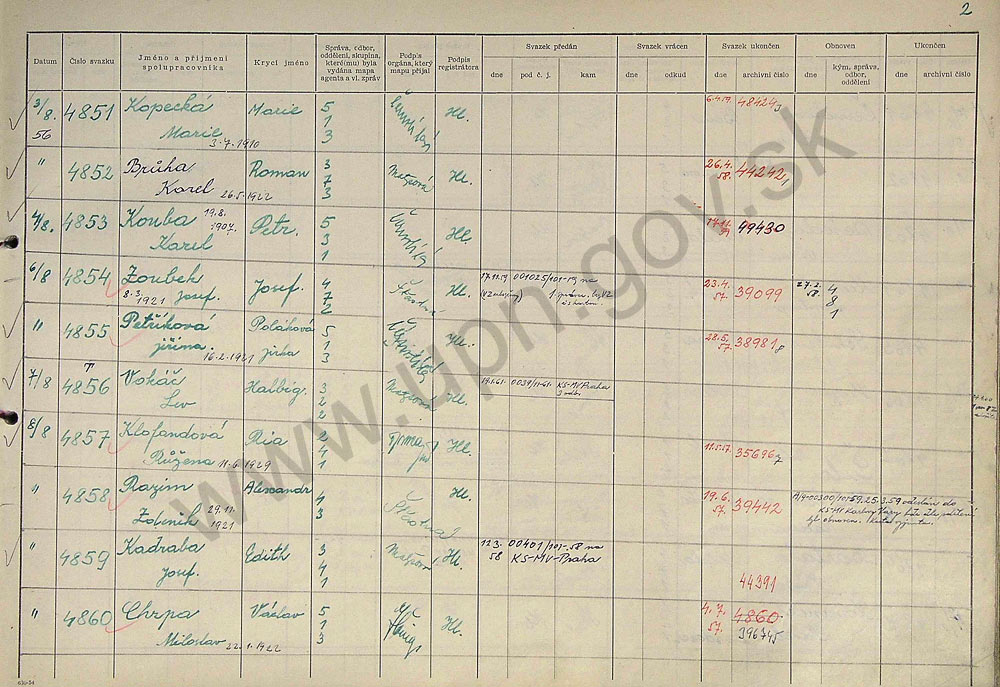 2
Datum
Číslo svazku
Jméno a příjmení
spolupracovníka
Krycí jméno
Správa, odbor,
oddělení, skupina,
které(mu) byla
vydána mapa
agenta a vl. zpráv
Podpis
orgána, který
mapu přijal
Podpis
registrátora
Svazek předán
dne
pod č. j.
kam
Svazek vrácen
dne
odkud
Svazek ukončen
dne
archivní číslo
Obnoven
dne
kým, správa,
odbor,
oddělení
Ukončen
dne
archivní číslo
3/8.
56
4851
Kopecká
Marie
3.7.1910
Marie
5
1
3
Hl.
48424
"
4852
Brůha
Karel
26.5.1922
Roman
3
7
3
Hl.
26.4.
58.
44242
1
4/8.
4853
Kouba
19.8.
1907.
Karel
Petr.
5
3
1
Hl.
49430
6/8
4854
Zoubek
8.3.
1921
Josef.
Josef.
4
7
2
Hl.
17.11.59
001025/101-59 na
23.4.
57.
39099
27.2.
58.
4
8
1
"
4855
Petříková
Jiřina
16.2.1921
Poláková
Jirka
5
1
3
Hl.
28.5.
57.
38981
8
7/8
4856
Vokáč
Lev
Halbig.
3
2
2
Hl.
KS-MV Praha
8/8
4857
Klofandová
Růžena
11.6.1929
Ria
2
4
1
Hl.
11.5.57.
35696
7
"
4858
Razim
Zdeněk
29.11.
1921
Alexandr
4
3
Hl.
19.6.
57.
39442
A/4-00300/101-59. 25.3.59 odeslán do
KS-MV Karlovy Vary
"
4859
Kadraba
Josef.
Edith
3
4
1
Hl.
12.3.
58
00401/101-58 na
KS-MV-Praha
44391
"
4860
Chrpa
Miloslav
22.1.1922
Václav
5
1
3
Hl.
4.7.
57.
4860
39674
www.upn.gov.sk